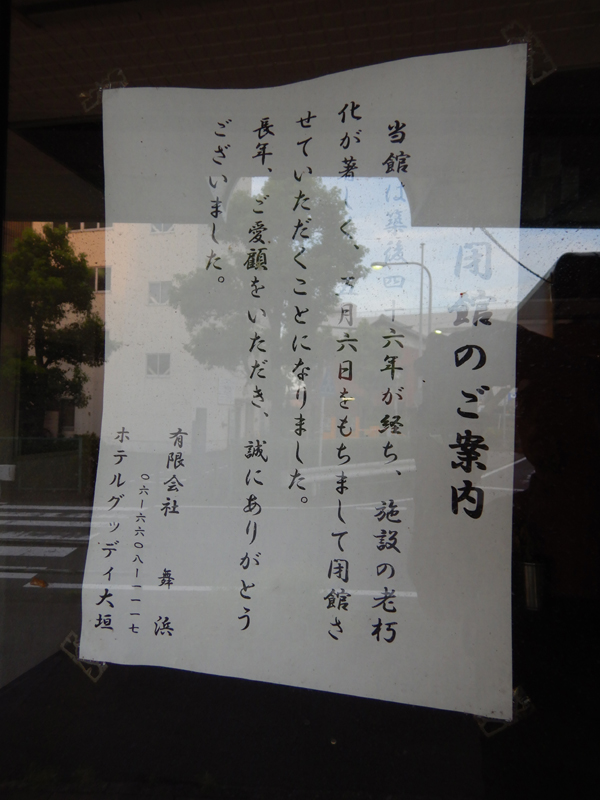 閉館のご案内
当館は築後四十六年が経ち、施設の老朽
化が著しく、月六日をもちまして閉館さ
せていただくことになりました。
長年、ご愛顧をいただき、誠にありがとう
ございました。
有限会社 舞浜
〇六ー六六〇八ー一一一七
ホテルグッディ大垣